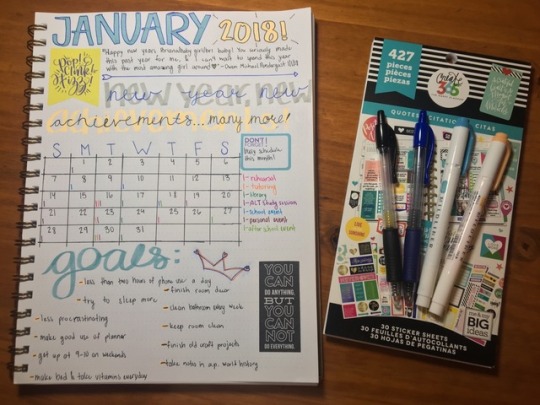 JANUARY 2018!
Pop! Clink! Fizz!
"Happy new years
made
this past year for me, & I can't wait to spend this year
with the most amazing girl around
new year new
new year, new
achievements... many more!
S M T W T F S
1 2 3 4 5 6
7 8 9 10 11 12 13
14 15 16 17 18 19 20
21 22 23 24 25 26 27
28 29 30 31
DONT!
busy schedule
this month!
1-rehearsal
1-tutoring
1-library
1-ALT study session
1-school event
1-personal event
1-after school event
goals:
- less than two hours of phone use a day
- finish room decor
- try to sleep more
- clean bathroom every week
- less procrastinating
- keep room clean
- make good use of planner
- finish old craft projects
- get up at 9-10 on weekends
- take notes in a.p. world history
- make bed & take vitamins everyday
YOU
CAN
DO ANYTHING
BUT
YOU
CAN
NOT
DO EVERYTHING
427
pieces
pièces
piezas
create
365
QUOTES CITATIONS CITAS
BIG
IDEAS
30 STICKER SHEETS
30 FEUILLES D'AUTOCOLLANTS
30 HOJAS DE PEGATINAS